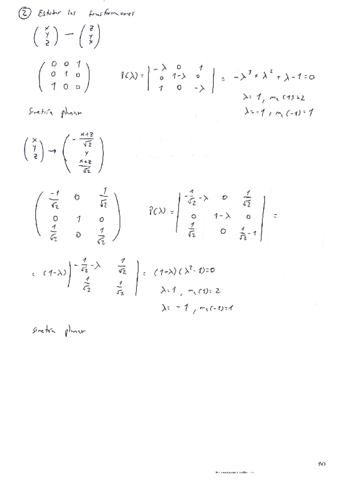 ② Estudiar las transformaciones
(x y z) → (z y x)
(0 0 1
0 1 0
1 0 0) P(λ) = |-λ 0 1
0 1-λ 0
1 0 -λ| = -λ³ + λ² + λ - 1 = 0
λ = 1, m(1) = 2
λ = -1, m(-1) = 1
Simetría planar
(x y z) → (-x+z/√2 y x+z/√2)
(-1/√2 0 1/√2
0 1 0
1/√2 0 1/√2) P(λ) = |-1/√2-λ 0 1/√2
0 1-λ 0
1/√2 0 1/√2-λ| =
= (1-λ) |-1/√2-λ 1/√2
1/√2 1/√2| = (1-λ)(λ²-1) = 0
λ = 1, m(1) = 2
λ = -1, m(-1) = 1
Simetría planar